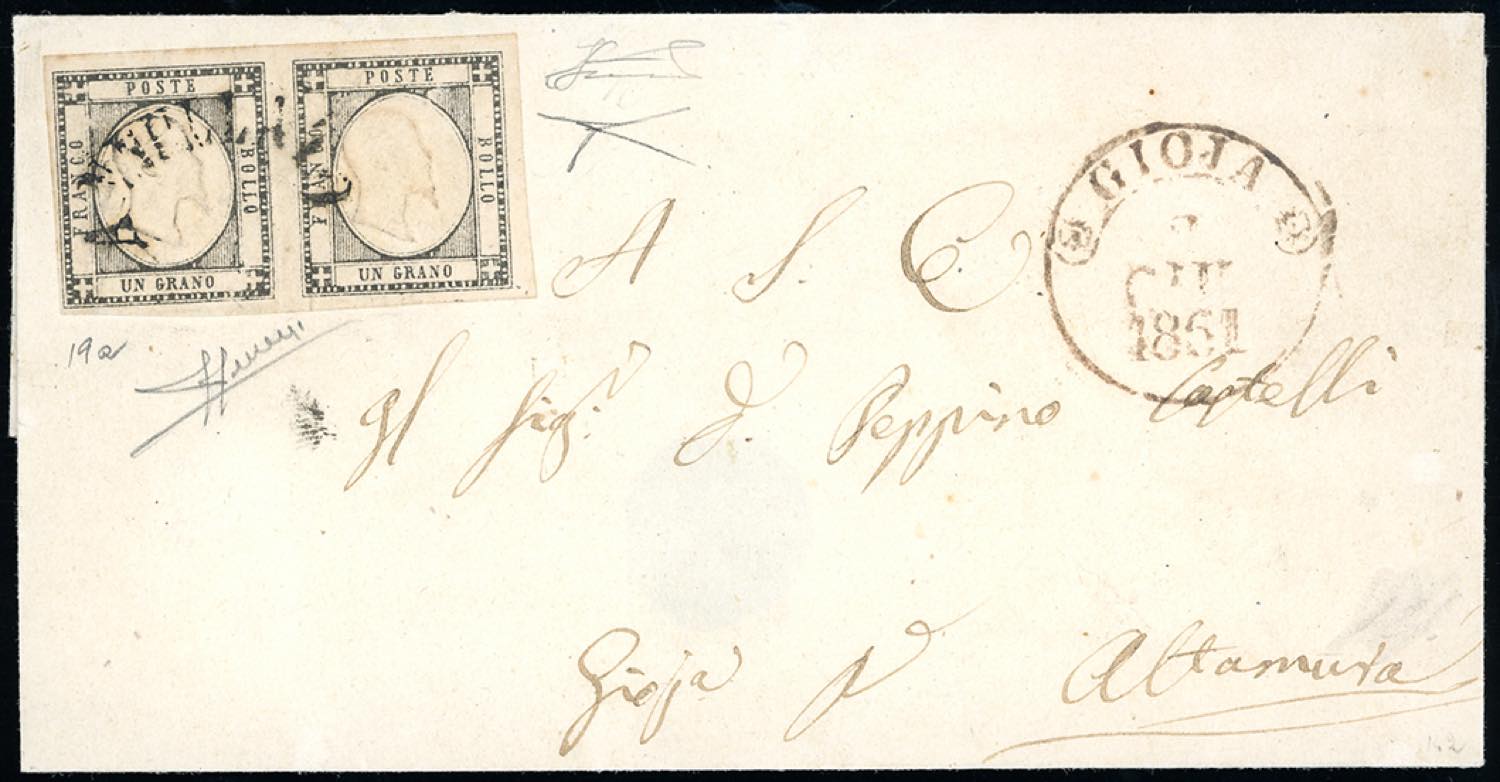 POSTE
FRANCO
BOLLO
UN GRANO
POSTE
FRANCO
BOLLO
UN GRANO
ANNULLATO
19a
GIOJA
GIU
1861
A S. E.
Al Sig.r D. Peppino Castelli
Gioja p Altamura